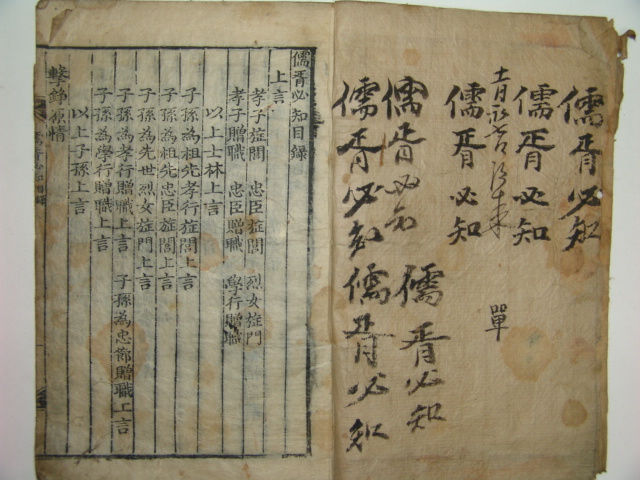 儒胥必知
儒胥必知
單
儒胥必知
儒胥必知
儒胥必知
儒胥必知
儒胥必知
儒胥必知目錄
上言
孝子㫌閭　忠臣㫌閭　烈女㫌門
孝子贈職　忠臣贈職　學行贈職
以上士林上言
子孫為祖先孝行㫌閭上言
子孫為祖先忠臣㫌閭上言
子孫為先世烈女㫌門上言
子孫為孝行贈職上言　子孫為忠節贈職上言
子孫為學行贈職上言
以上子孫上言
擊錚原情